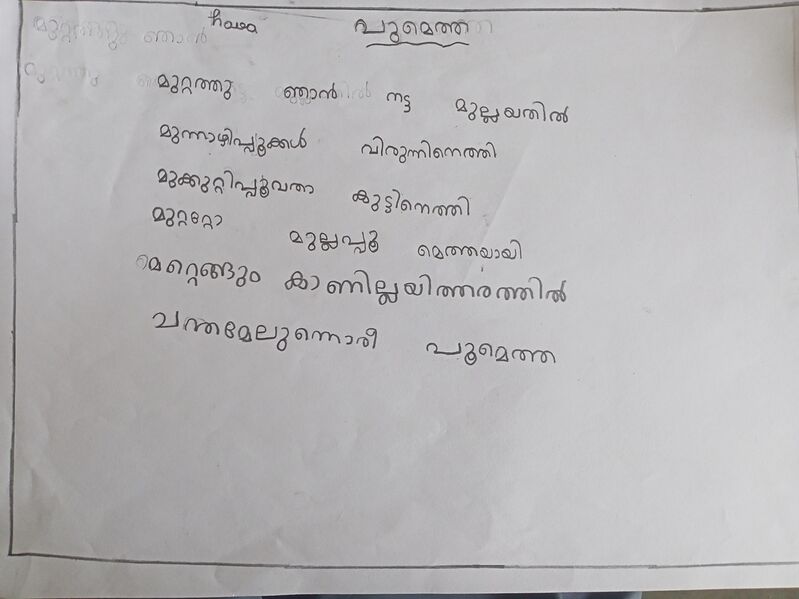 hawa പൂമെത്ത
മുറ്റത്തു ഞാൻ നട്ട മുല്ലയതിൽ
മുന്നാഴിപ്പൂക്കൾ വിരുന്നിനെത്തി
മുക്കുറ്റിപ്പൂവതാ കൂട്ടിനെത്തി
മുറ്ററ്റോ മുല്ലപ്പൂ മെത്തയായി
മറ്റെങ്ങും കാണില്ലയിത്തരത്തിൽ
ചന്തമേലുന്നൊരീ പൂമെത്ത